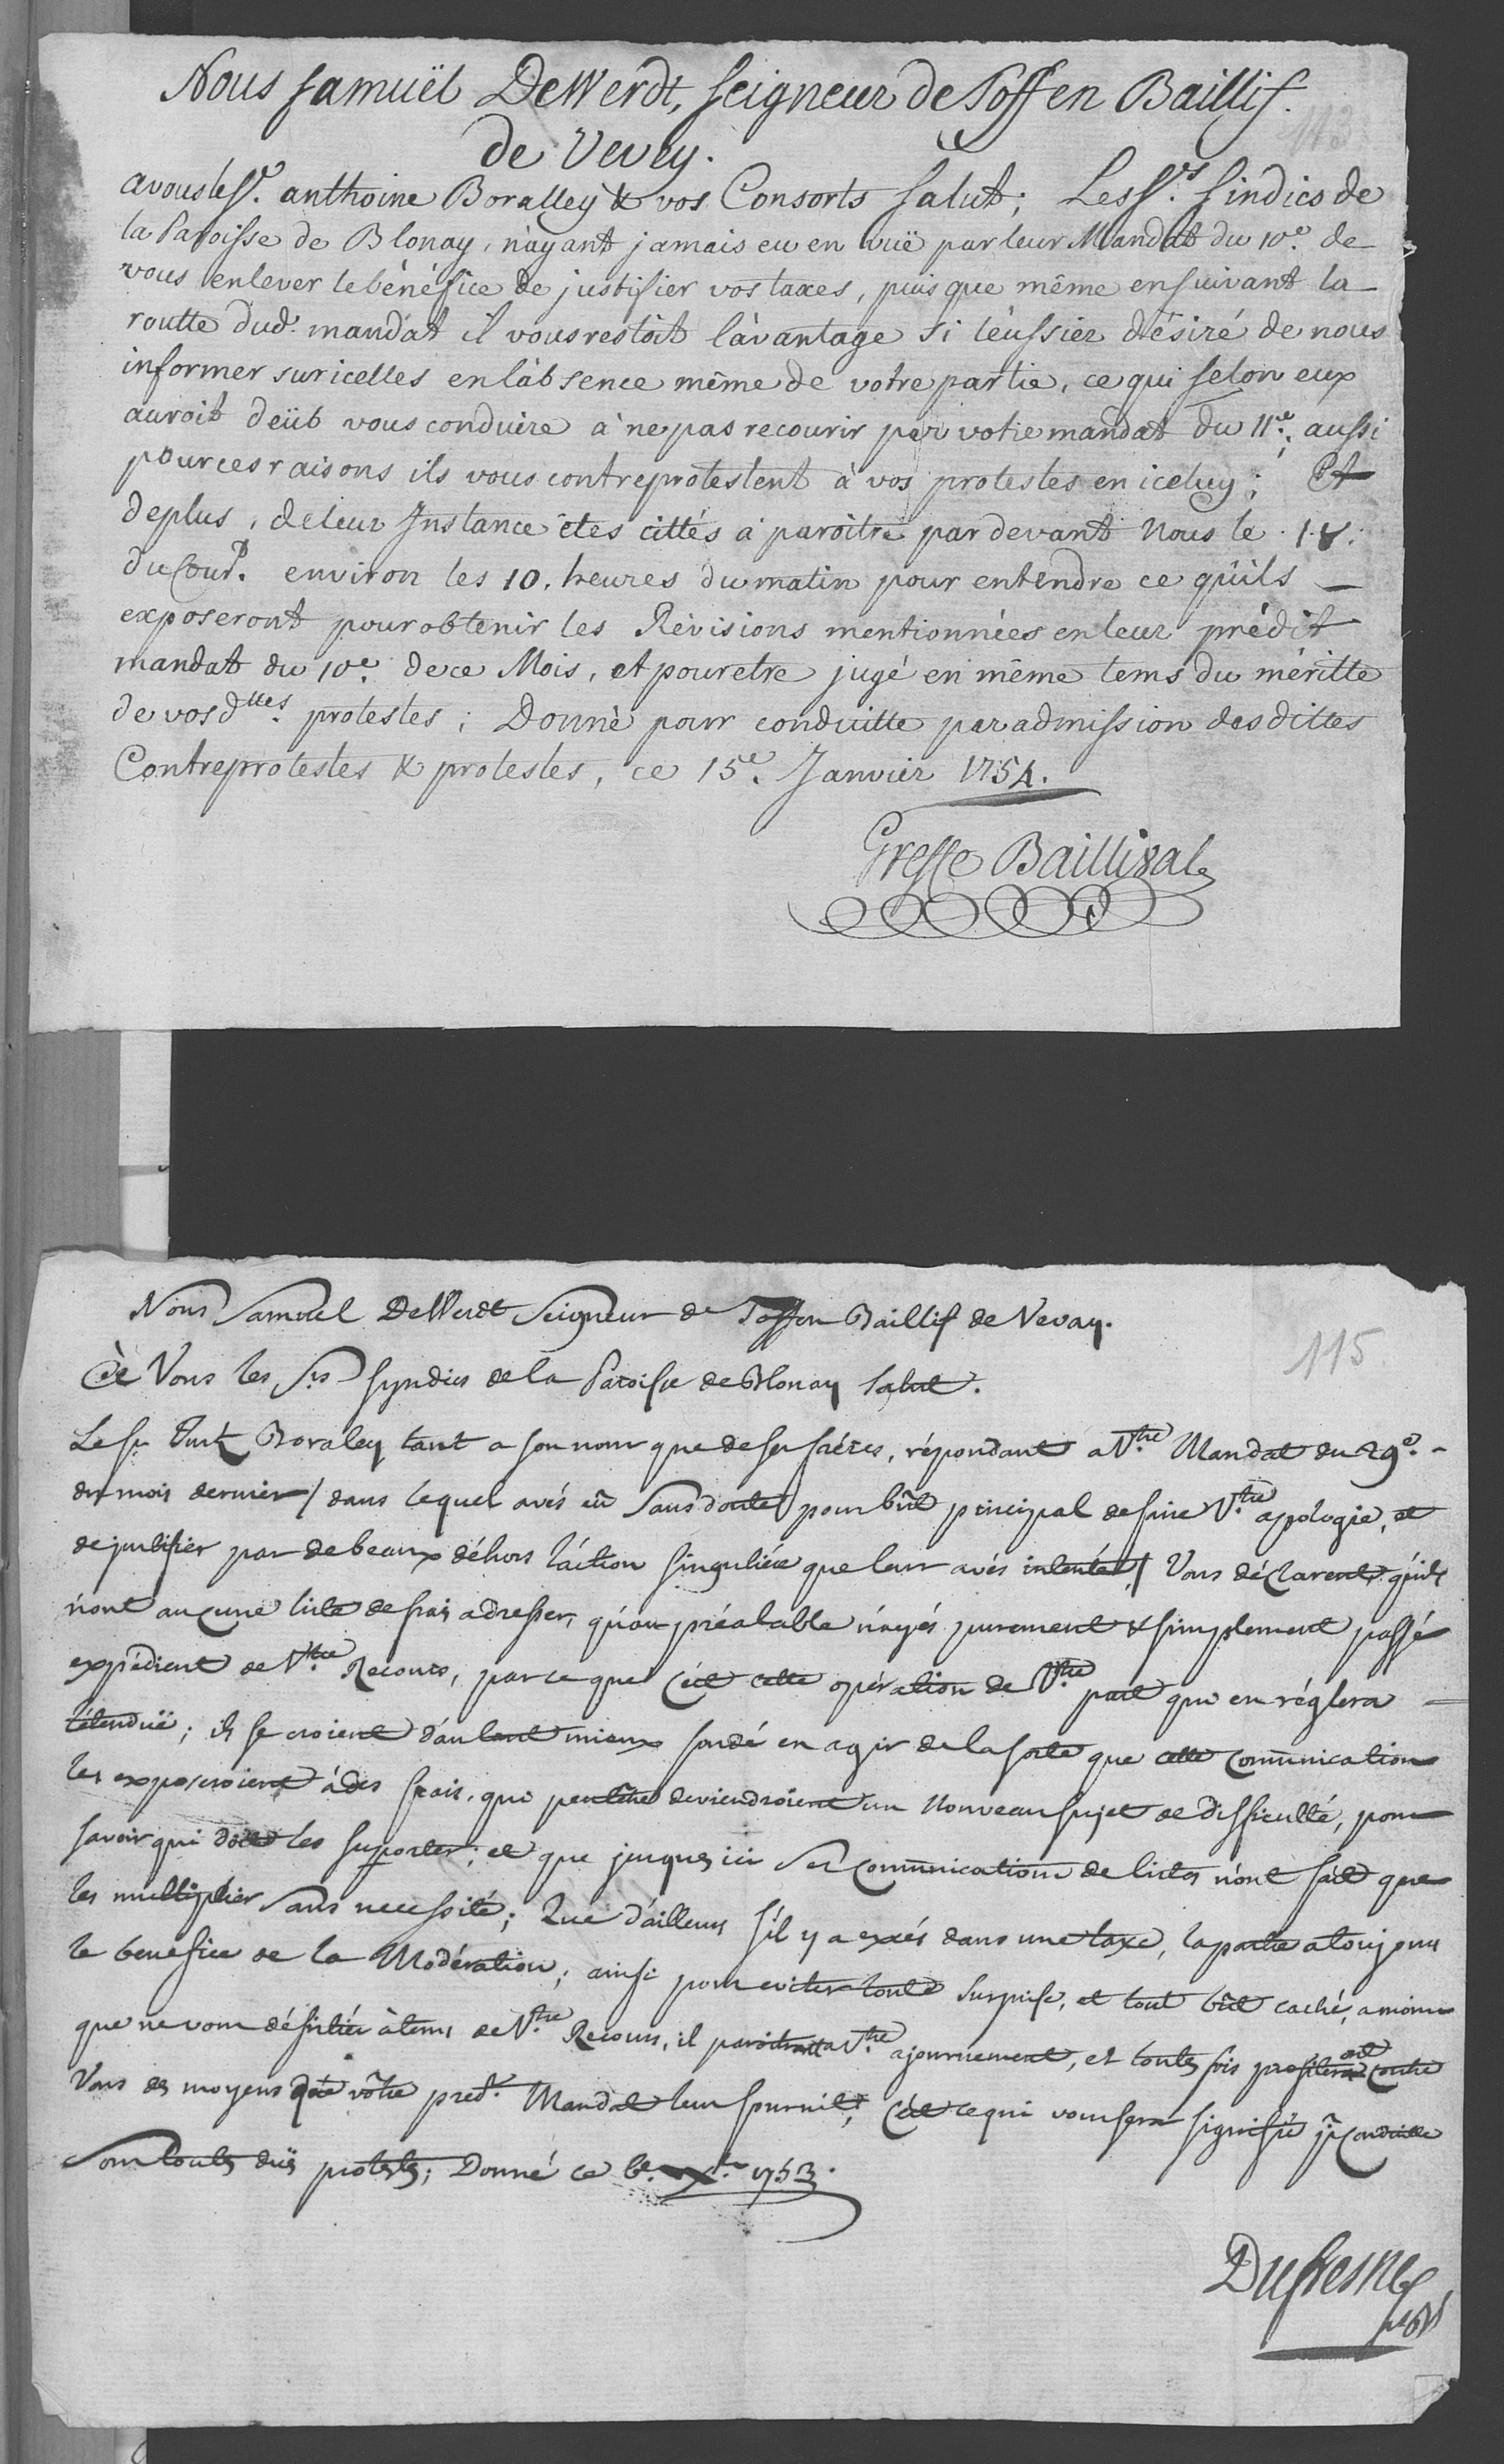 Nous Samuël DeWerdt, Seigneur de Toffen Baillif.
113
de Vevey.
a vous le Sr. anthoine Boralley & vos Consorts Salut; Les Srs. Sindics de
la Paroisse de Blonay, n'ayant jamais eu en vuë par leur Mandat du 10e. de
vous enlever le bénéfice de justifier vos taxes, puis que même en suivant la
routte dud. mandat il vous restoit l'avantage si l'eussiez désiré de nous
informer sur icelles en l'absence même de votre partie, ce qui selon eux
auroit deüb vous conduire à ne pas recourir par votre mandat du 11e; aussi
pour ces raisons ils vous contreprotestent à vos protestes en iceluy; Et
de plus, de leur Instance êtes cittés à paroitre par devant Nous le 18.
du Court. environ les 10. heures du matin pour entendre ce qu'ils
exposeront pour obtenir les Révisions mentionnées en leur prédit
mandat du 10e. de ce Mois, et pour etre jugé en même tems du méritte
de vos dttes. protestes; Donné pour conduitte par admission des dittes
Contreprotestes & protestes, ce 15e. Janvier 1754.
Greffe Baillival
Nous Samuel DeWerdt Seigneur de Toffen Baillif de Vevay.
115
A Vous les Srs Syndics de la Paroisse de Blonay Salut.
Le Sr Boraley tant a son nom que de ses frères, répondant a Vtre Mandat du 29e.
du mois dernier / dans lequel avés eû sans doute pour bût principal de faire Vtre apologie, et
de justifier par de beaux déhors l'action singuliére que leur avés intentée / Vous déclarent qu'ils
n'ont aucune liste de frais adresser, qu'au préalable n'ayés purement & simplement passé
expédient de Vtre Recours, parce que c'est cette opération de Vtre part qui en réglera
l'étenduë; ils se croient d'autant mieux fondé en agir de la sorte que cette communication
les exposeroient à des frais, qui peutêtre deviendroient un nouveau sujet de difficulté, pour
savoir qui doit les suporter; et que jusques ici ses communications de listes n'ont fait que
les multiplier sans necessité; Que d'ailleurs s'il y a excés dans une taxe, la partie a toujours
le benefice de la Modération; ainsi pour eviter toute surprise, et tout bût caché, a moins
que ne vous désistiés à tems de Vtre Recours, il paroitra a Vtre ajournement, et toutes fois profiteront contre
Vous des moyens que vôtre pred. Mandat leur fournit; C'est ce qui vous sera signifié pr Conduitte
sous toutes duës protestes; Donné ce 6e. Xbre 1753.
Dufresne